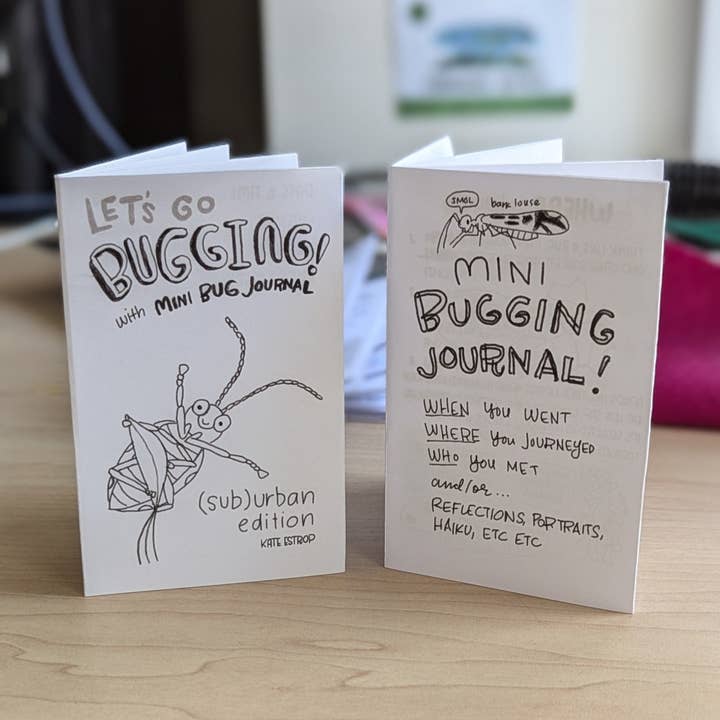 LET'S GO
BUGGING!
with MINI BUG JOURNAL
(sub)urban
edition
KATE ESTROP
SMOL
bark louse
MINI
BUGGING
JOURNAL!
WHEN YOU WENT
WHERE YOU JOURNEYED
WHO YOU MET
and/or...
REFLECTIONS, PORTRAITS,
HAIKU, ETC ETC